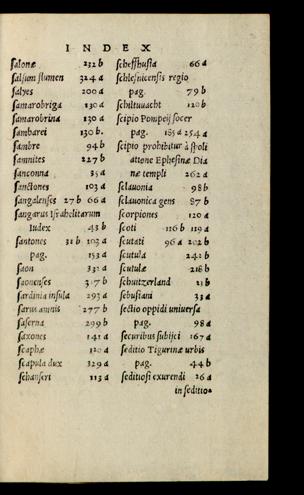 INDEX
salonæ 232 b
salsum flumen 324 a
salyes 200 a
samarobriga 130 a
samarobrina 130 a
sambarei 130 b.
sambre 94 b
samnites 227 b
sanconna 35 a
sanctones 103 a
sangalenses 27 b 66 a
sangarus Israhelitarum
Iudex 43 b
santones 31 b 103 a
pag. 153 a
saon 332 a
saonenses 317 b
sardinia insula 293 a
sarus amnis 277 b
saserna 299 b
saxones 141 a
scaphæ 120 a
scapula dux 329 a
schanseri 113 a
scheffhusia 66 a
schlesuicensis regio
pag. 79 b
schiltuuacht 120 b
scipio Pompeij socer
pag. 185 a 254 a
scipio prohibitur à spoli
atione Ephesinæ Dia
næ templi 262 a
sclauonia 98 b
sclauonica gens 87 b
scorpiones 120 a
scoti 116 b 119 a
scutati 96 a 202 b
scutula 241 b
scutulæ 218 b
schuitzerland 21 b
sebusiani 33 a
sectio oppidi uniuersa
pag. 98 a
securibus subijci 167 a
seditio Tigurinæ urbis
pag. 44 b
seditiosi exurendi 26 a
in seditio-